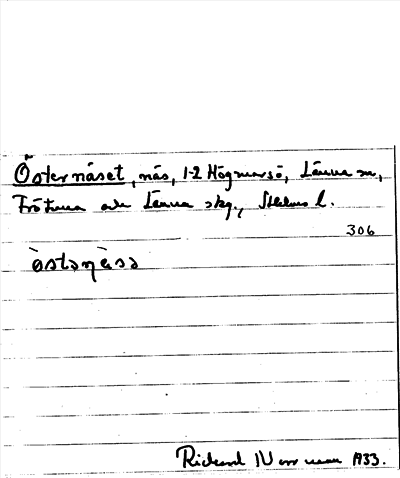 Östernäset, näs, 1-2 Högmarsö, Länna sn,
Frötuna och Länna skg., Sthlms l.
306
òstəɳèsə
Rickard Norrman 1933.